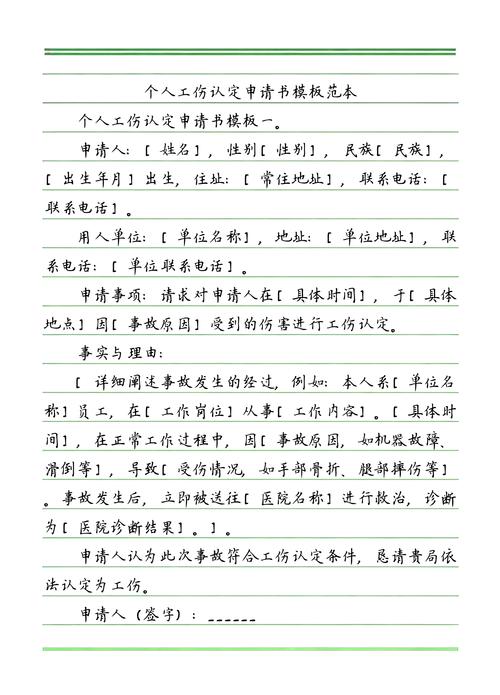 个人工伤认定申请书模板范本
个人工伤认定申请书模板一。
申请人:[ 姓名], 性别[ 性别], 民族[ 民族],
[ 出生年月] 出生, 住址:[ 常住地址], 联系电话:[
联系电话]。
用人单位:[ 单位名称], 地址:[ 单位地址], 联
系电话:[ 单位联系电话]。
申请事项: 请求对申请人在[ 具体时间], 于[ 具体
地点] 因[ 事故原因] 受到的伤害进行工伤认定。
事实与理由:
[ 详细阐述事故发生的经过, 例如: 本人系[ 单位名
称] 员工, 在[ 工作岗位] 从事[ 工作内容]。[ 具体时
间], 在正常工作过程中, 因[ 事故原因, 如机器故障、
滑倒等], 导致[ 受伤情况, 如手部骨折、腿部摔伤等]
。事故发生后, 立即被送往[ 医院名称] 进行救治, 诊断
为[ 医院诊断结果]。]。
申请人认为此次事故符合工伤认定条件, 恳请贵局依
法认定为工伤。
申请人 (签字) : ______